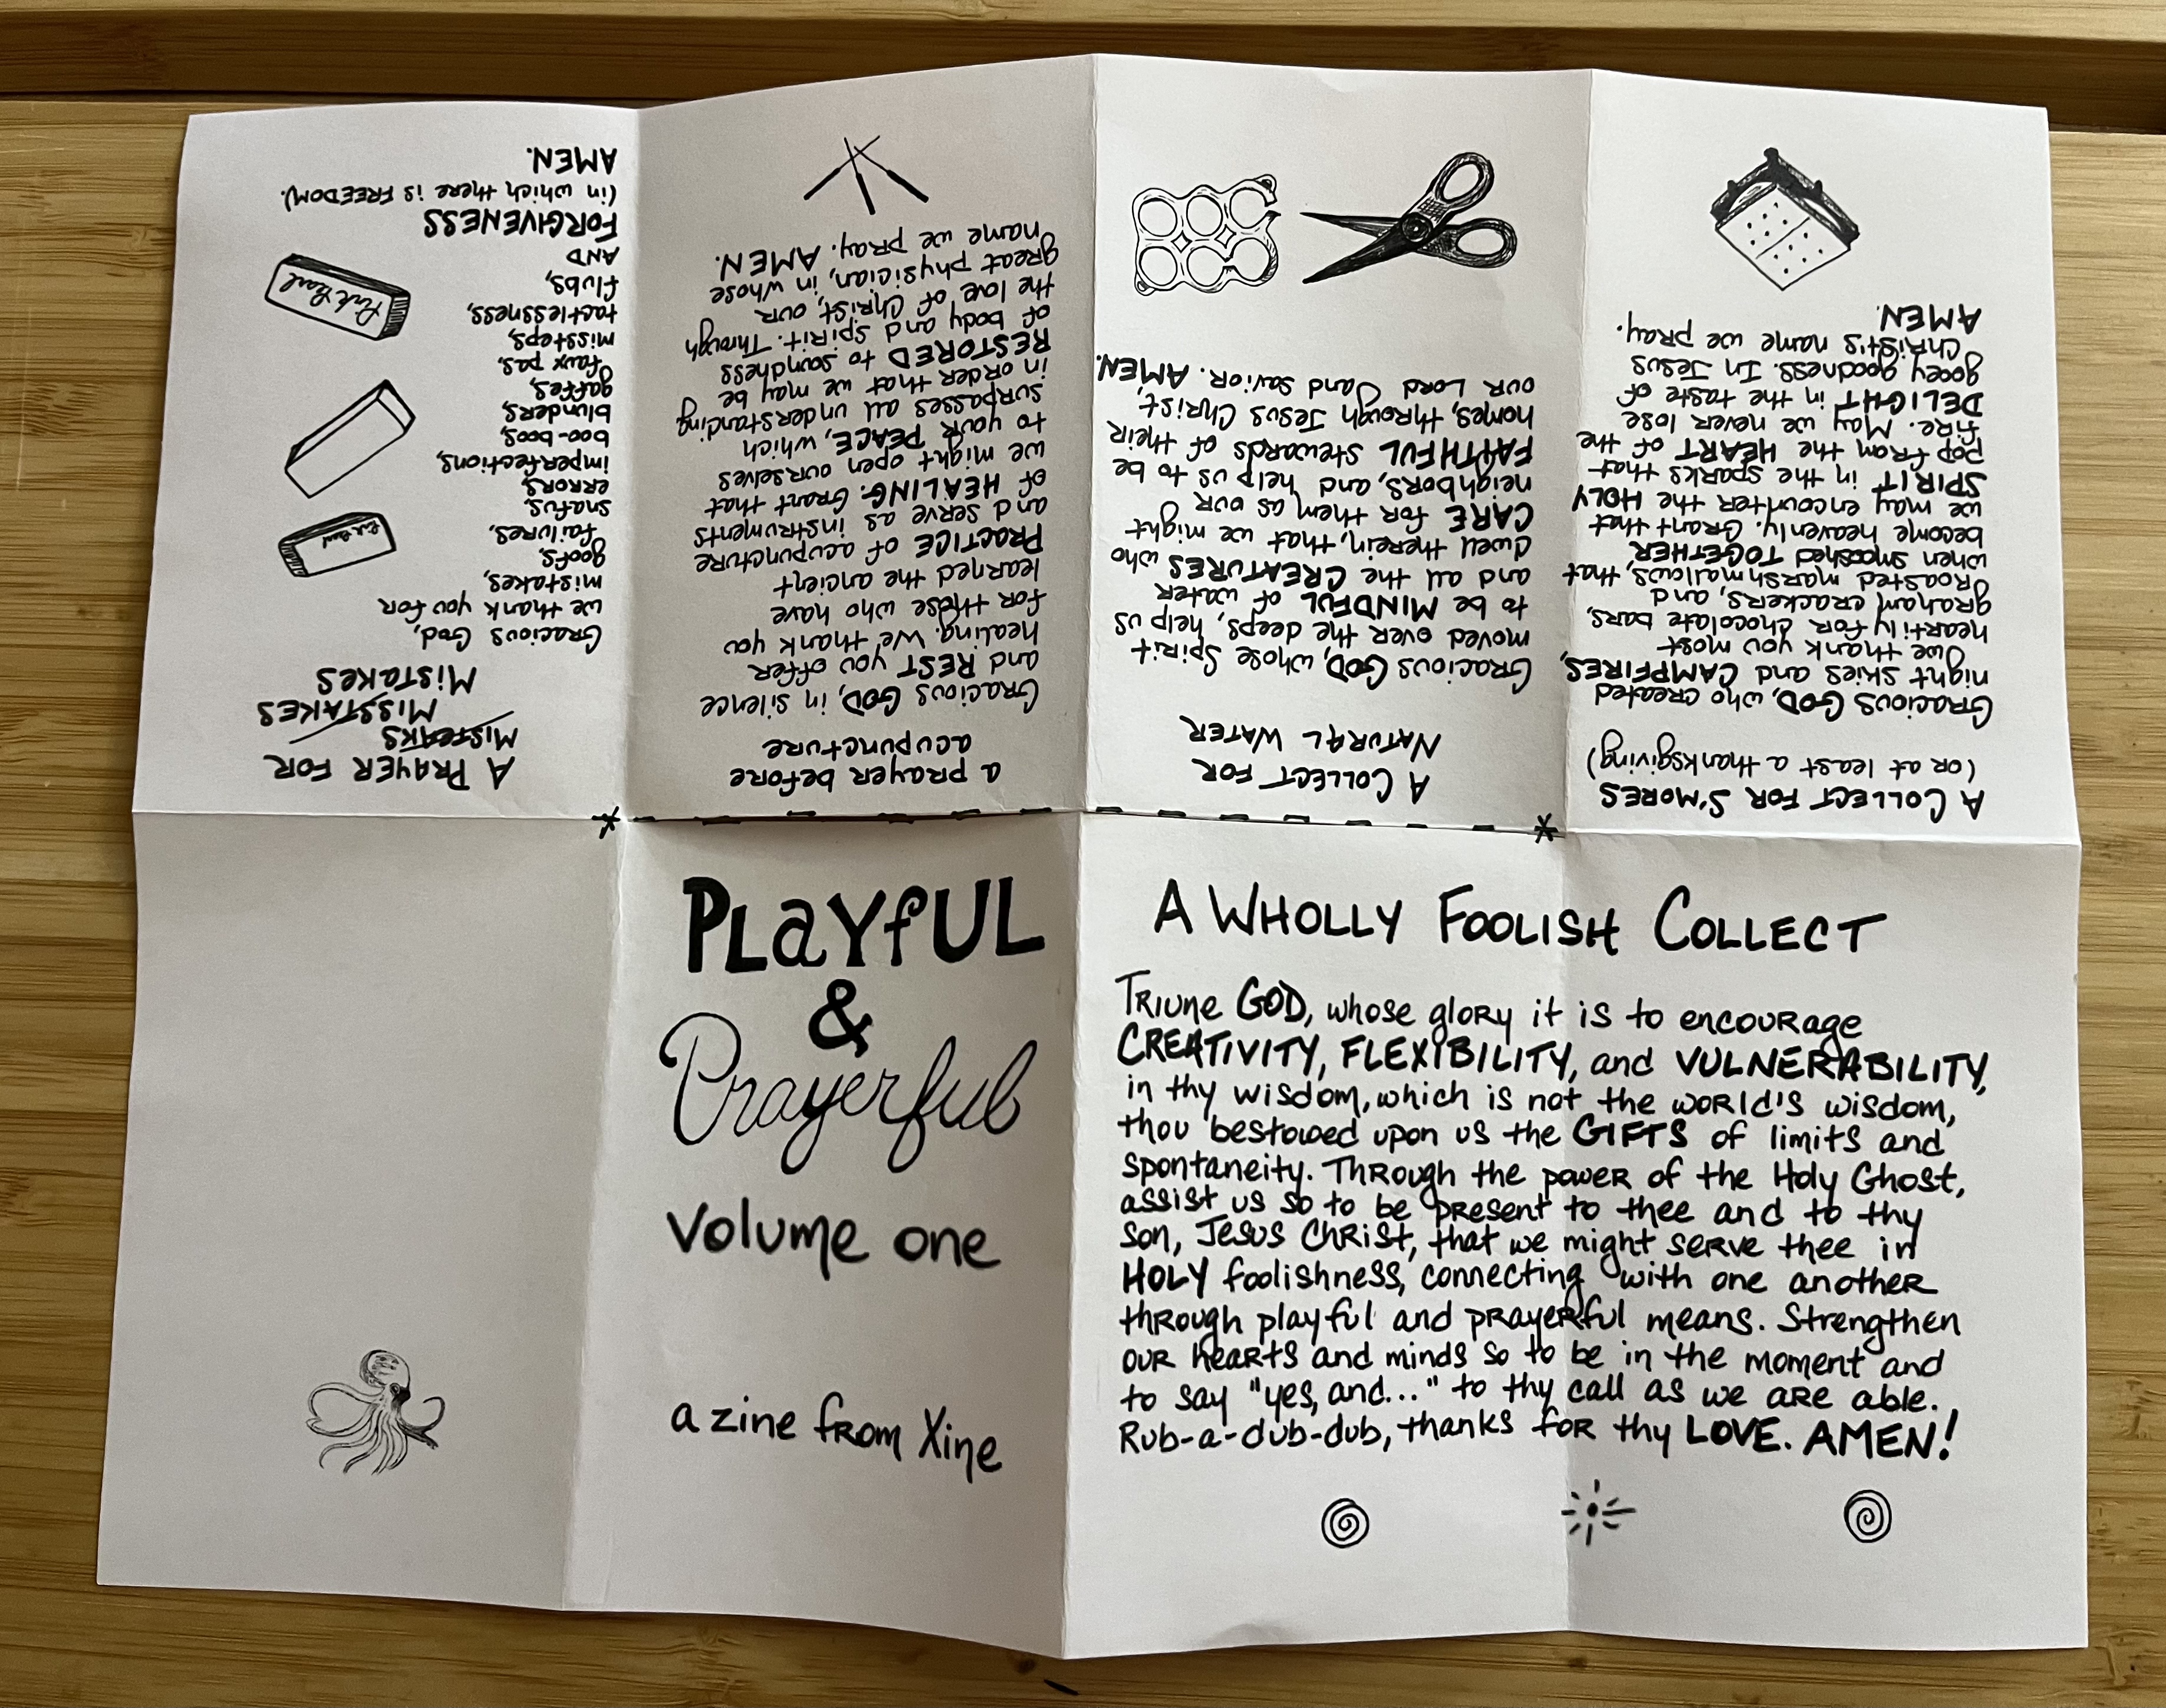 PLayfUL
&
Prayerful
volume one
a zine from Xine
A WHOLLY FOOLISH COLLECT
Triune GOD, whose glory it is to encourage
CREATIVITY, FLEXIBILITY, and VULNERABILITY,
in thy wisdom, which is not the world's wisdom,
thou bestowed upon us the GIFTS of limits and
spontaneity. Through the power of the Holy Ghost,
assist us so to be present to thee and to thy
son, Jesus Christ, that we might serve thee in
HOLY foolishness, connecting with one another
through playful and prayerful means. Strengthen
our hearts and minds so to be in the moment and
to say "yes, and..." to thy call as we are able.
Rub-a-dub-dub, thanks for thy LOVE. AMEN!
A COLLECT FOR S'MORES
(or at least a thanksgiving)
Gracious GOD, who created
night skies and CAMPFIRES,
we thank you most
heartily for chocolate bars,
graham crackers, and
roasted marshmallows, that
when smooshed TOGETHER,
become heavenly. Grant that
we may encounter the HOLY
SPIRIT in the sparks that
pop from the HEART of the
fire. May we never lose
DELIGHT in the taste of
gooey goodness. In Jesus
Christ's name we pray.
AMEN.
A COLLECT FOR
NATURAL WATER
Gracious GOD, whose Spirit
moved over the deeps, help us
to be MINDFUL of water
and all the CREATURES who
dwell therein, that we might
CARE for them as our
neighbors, and help us to be
FAITHFUL stewards of their
homes, through Jesus Christ,
our Lord and savior. AMEN.
a prayer before
acupuncture
Gracious GOD, in silence
and REST you offer
healing. We thank you
for those who have
learned the ancient
PRACTICE of acupuncture
and serve as instruments
of HEALING. Grant that
we might open ourselves
to your PEACE, which
surpasses all understanding
in order that we may be
RESTORED to soundness
of body and spirit. Through
the love of Christ, our
great physician, in whose
name we pray. AMEN.
A PRAYER FOR
MISTEAKS
MISSTAKES
MISTAKES
Gracious God,
we thank you for
mistakes,
goofs,
failures,
snafus,
errors,
imperfections,
boo-boos,
blunders,
gaffes,
faux pas,
missteps,
tactlessness,
flubs,
AND
FORGIVENESS
(in which there is FREEDOM).
AMEN.
Pink Pearl
Pink Pearl